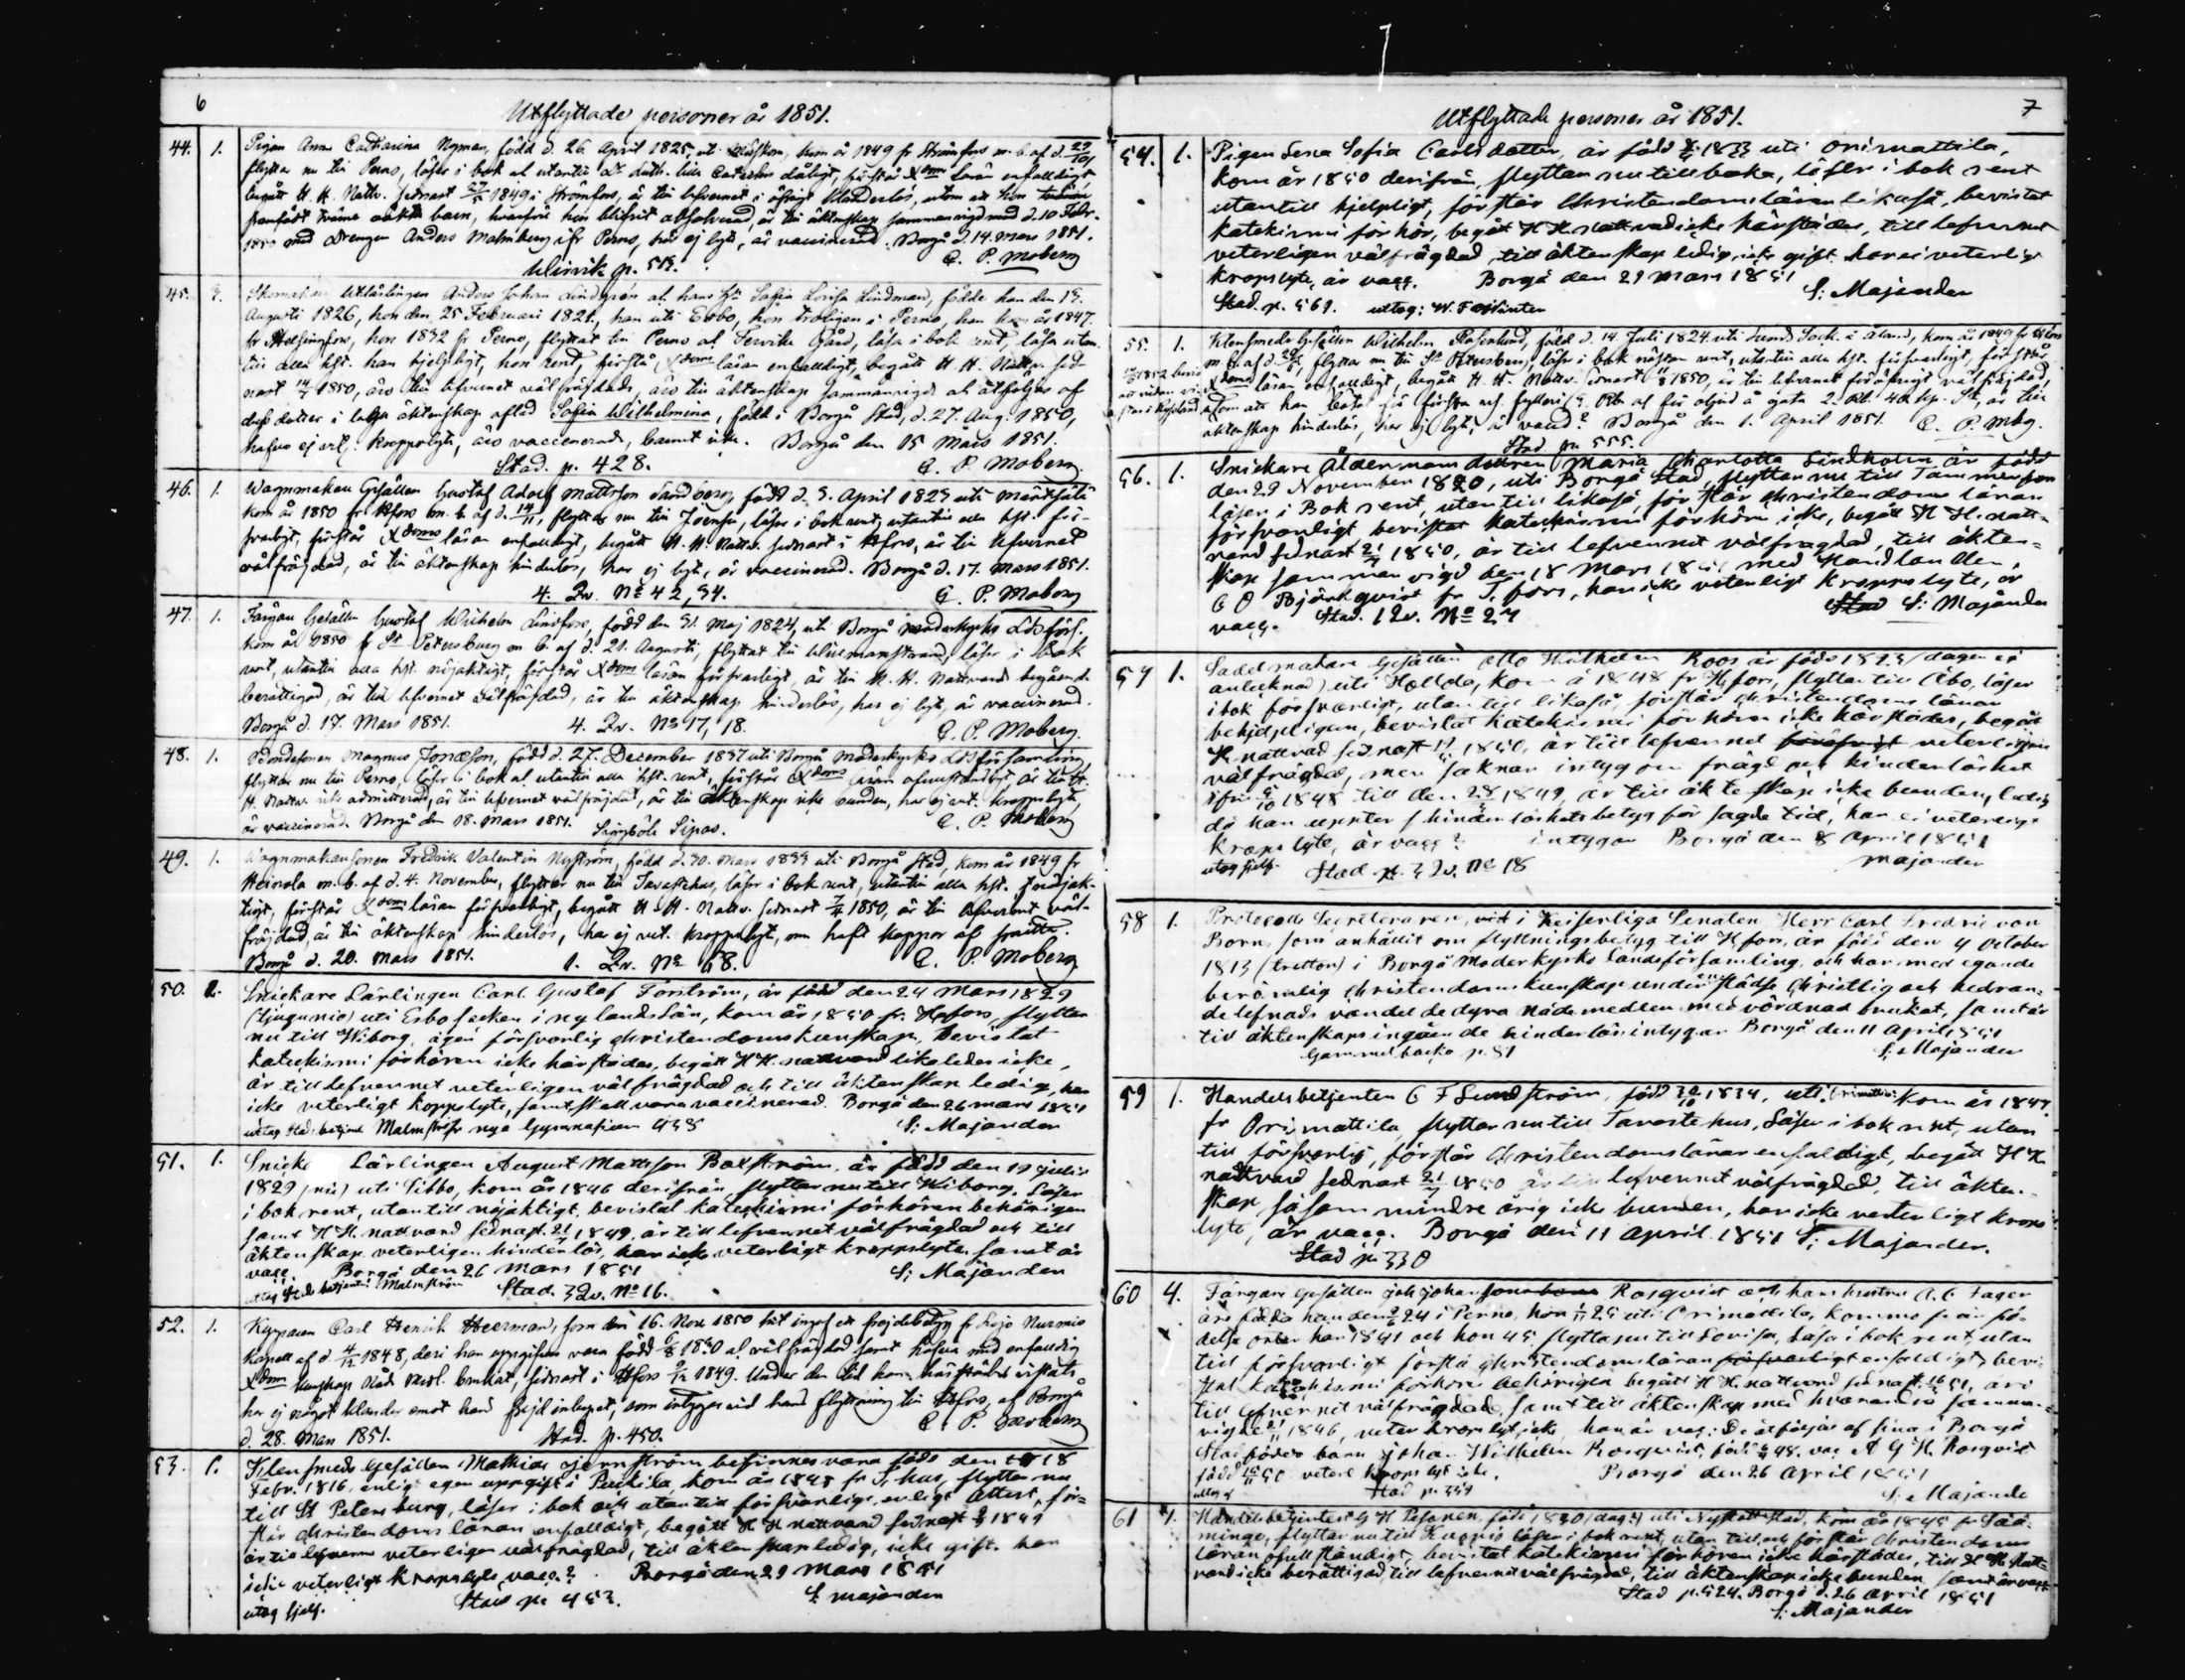 6
Utflyttade personer år 1851.
44. 1. Pigan Anna Catharina Nyman, född d. 26 April 1825, uti kom år 1849 fr Strömfors m. b. af d.
flyttar nu till Perno, läser i bok al utantill dr Luth. lilla Cateches dåligt, förstår Xdoms läran enfaldigt
begått H. H. Nattv. sednast 1849 i Strömfors, är till lefvernet i öfrigt klanderlös, utom att hon
framfödt tvänne oäkta barn, hvarföre hon blifvit absolverad, är till äktenskap sammanvigd med d. 10 Febr.
1850 med Drengen Anders Malmberg ifr Perno, har ej lyte, är vaccinerad. Borgå d. 14. Mars 1851.
C. P. Moberg
p. 513.
45. 3. Utlärlingen Anders Johan Lindgrén al. hans h:u Sofia Lovisa Lindman, födde han den 13.
Augusti 1826, hon den 25 Februari 1821, han uti Esbo, hon troligen i Perno, han kom år 1847
fr Helsingfors, hon 1832 fr Perno, flyttat till Perno al Tervik Gård, läsa i bok rent, läsa utan-
till alla hft. han hjelpligt, hon rent, förstå Xdoms läran enfaldigt, begått H. H. Nattv. sed-
nast 14/7 1850, äro till lefvernet välfräjdade, äro till äktenskap sammanvigde al åtföljas af
dess dotter i laga äktenskap aflad Sofia Wilhelmina, född i Borgå Stad, d. 27. Aug. 1850,
hafva ej vet. kroppslyte, äro vaccinerade, barnet icke. Borgå den 15 Mars 1851.
Stad. p. 428. C. P. Moberg
46. 1. Wagnmakare Gesällen Gustaf Adolf Mattsson Sandberg, född d. 3. April 1823 uti Mäntsälä
kom år 1850 fr Hfors m. b. af d. 14/11, flyttar nu till Joensu, läser i bok rent, utantill alla hft. för-
svarligt, förstår Xdoms läran enfaldigt, begått H. H. Nattv. sednast i Hfors, är till lefvernet
välfräjdad, är till äktenskap hinderlös, har ej lyte, är vaccinerad. Borgå d. 17. Mars 1851.
4. Qv. No 42, 34. C. P. Moberg
47. 1. Färgare Gesällen Gustaf Wilhelm Lindfors, född den 31. Maj 1824, uti Borgå moderkyrko Ldsförs.
kom år 1850 fr St Petersburg m b. af d. 21. Augusti, flyttat till Wilmanstrand, läser i bok
rent, utantill alla hft. nöjaktigt, förstår Xdoms läran försvarligt, är till H. H. Nattvards begående
berättigad, är till lefvernet välfräjdad, är till äktenskap hinderlös, har ej lyte, är vaccinerad.
Borgå d. 17. Mars 1851. 4. Qv. No 17, 18. C. P. Moberg.
48. 1. Bondesonen Magnus Jonasson, född d. 27. December 1837 uti Borgå moderkyrko Ldsförsamling,
flyttar nu till Perno, läser i bok al utantill alla hft. rent, förstår Xdoms läran ofullständigt är till H.
H. Nattv. icke admitterad, är till lefvernet välfräjdad, är till äktenskap icke bunden, har ej vet. kroppslyte,
är vaccinerad. Borgå den 18. Mars 1851. Sipas. C. P. Moberg
49. 1. Wagnmakaresonen Fredrik Valentin Nyström, född d. 30. Mars 1833 uti Borgå stad, kom år 1849 fr
Heinola m. b. af d. 4. November, flyttar nu till Tavastehus, läser i bok rent, utantill alla hft. nöjak-
tigt, förstår Xdoms läran försvarligt, begått H. H. Nattv. sednast 1850, är till lefvernet väl-
fräjdad, är till äktenskap hinderlös, har ej vet. kroppslyte, men haft koppor
Borgå d. 20. Mars 1851. 1. Qv. No 68. C. P. Moberg
50. 1. Snickare Lärlingen Carl Gustaf Forström, är född den 24 Mars 1829
(tjugunio) uti Esbo socken i nylands län, kom år 1850 fr. H:fors, flyttar
nu till Wiborg, äger försvarlig christendomskunskap, bevistat
katekismi förhören icke härstädes, begått HH. nattvard likaledes icke,
är till lefvernet veterligen välfrägdad och till äktenskap ledig, har
icke veterligt kroppslyte, samt skall vara vaccinerad. Borgå den 26 mars 1851
uttog Stads betjent Malmström nya Gymnasium 458 S: Majander
51. 1. Snicke Lärlingen August Mattsson Boxström, är född den 19 Julii
1829 (nio) uti Sibbo, kom år 1846 derifrån, flyttar nu till Wiborg. Läser
i bok rent, utantill nöjaktigt, bevistat katekismi förhören behörigen
samt H H. nattvard sednast 21/7 1849, är till lefvernet välfrägdad och till
äktenskap veterligen hinderlös, har icke veterligt kroppslyte samt är
vacc. Borgå den 26 Mars 1851 S: Majander
uttog Stads betjent: Malmström Stad. 3 Qv. No 16.
52. 1. Kypparen Carl Henrik Heerman, som den 16. Nov 1850 hit ingaf ett frejdebetyg fr Lojo Nummis
Kapell af d. 4/12 1848, deri han uppgifves vara född 6/8 1830 al välfräjdad samt hafva med enfaldig
Xdoms kunskap Nåd. medl. brukat, sednast i Hfors 1849. Under den tid han härstädes vistats
har ej något klander emot hans fräjd inlupit, som intygas vid hans flyttning till Hfors, af Borgå
d. 28. Mars 1851. Stad. p. 450. C. P. Moberg
53. 1. Klensmeds Gesällen Mathias Gernström befinnes vara född den 18
Febr. 1816, enligt egen uppgift i Puckila, kom år 1848 fr T. hus, flyttar nu
till St Petersburg, läser i bok och utantill försvarligt, enligt attest, för-
står christendoms läran enfaldigt, begått H H nattvard sednast 1849
är till lefverne veterligen välfrägdad, till äktenskap ledig, icke gift. har
icke veterligt kroppslyte, vacc.? Borgå den 29 Mars 1851
uttog sjelf. Stad p: 453. S: Majander
7
Utflyttade personer år 1851.
54. 1. Pigan Lena Sofia Carls dotter, är född 1833 uti Orimattila,
kom år 1850 derifrån, flyttar nu tillbaka, läser i bok rent
utantill hjelpligt, förstår Christendomsläran likaså, bevistat
katekismi förhör, begått HH nattvard icke härstädes, till lefvernet
veterligen välfrägdad, till äktenskap ledig, icke gift, har ei veterligt
kropslyte, är vacc. Borgå den 29 Mars 1851
Stad. p. 569. uttog: S: Majander
55. 1. Klensmeds Gesällen Wilhelm Rosenlund, född d. 14 Juli 1824 uti Sunds Sock. i Åland, kom år 1849 fr
m b. af d. flyttar nu till St Petersburg, läser i bok nästan rent, utantill alla hft. försvarligt, förstår
Xdoms läran enfaldigt, begått H. H. Nattv. sednast 1850, är till lefvernet föröfrigt välfräjdad,
utom att han bötat för första res. fylleri 3. Rb al för oljud å gata 2 Rb. 40 kop. Sr, är till
äktenskap hinderlös, har ej lyte, är vacc.? Borgå den 1. April 1851. C. P. Mbg.
Stad p. 555.
56. 1. Snickare Åldermans dottren Maria Charlotta Lindholm är född
den 29 November 1820, uti Borgå Stad, flyttar nu till Tammerfors
läser i Bok rent, utantill likaså, förstår christendoms läran
försvarligt bevistat katekismi förhören icke, begått H H. natt-
vard sednast 21/7 1850, är till lefvernet välfrägdad, till äkten-
skap sammanvigd den 18 Mars 1851 med Handlanden,
C O Björkqvist fr T. fors, har icke veterligt kroppslyte, är
vacc. Stad. 1 Qv. No 27 S: Majander
57 1. Sadelmakare Gesällen Otto Wilhelm Roos är född 1823 (dagen ei
antecknad) uti Hollola, kom å 1848 fr H. fors, flyttar till Åbo, läser
i bok försvarligt, utantill likaså, förstår christendoms läran
behjelpligen, bevistat katekismi förhören icke härstädes, begått
H. nattvard sednast 1850, är till lefvernet veterligen
välfrägdad, men saknar intyg om frägd och hinderlöshet
ifrån 1848 till den 1849, är till äkteskap icke bunden, ledig
då han uppter hinderlöshetsbetyg för sagde tid, har ei veterligt
kropslyte, är vacc? intygar Borgå den 8 April 1851
uttog sjelf. Stad p. 3 Qv. No 18 Majander
58 1. Protocolls Secreteraren, vid i Keiserliga Senaten Herr Carl Fredric von
Born, som anhållit om flyttningsbetyg till H. fors, är född den 4 October
1813 (tretton) i Borgå Moderkyrko Landsförsamling, och har med egande
berömlig christendoms kunskap under en städse christlig och hedran-
de lefnads vandel de dyra nådemedlen med vördnad brukat, samt är
till äktenskaps ingående hinderlös intygar Borgå den 11 April 1851
Gammelbacka p. 81 S: Majander
59 1. Handelsbetjenten C F Lundström, född 1834, uti Orimattila kom år 1847
fr Orimattila, flyttar nu till Tavastehus, Läser i bok rent, utan
till försvarlig, förstår christendomsläran enfaldigt, begått H H
nattvard sednast 21/7 1850 är till lefvernet välfrägdad, till äkten-
skap såsom minderårig icke bunden, har icke veterligt krops
lyte, är vacc. Borgå den 11 April 1851 S: Majander.
Stad p. 330
60 4. Färgare Gesällen Rosqvist och hans hustru Fager
äro födda han den 24 i Perno, hon 25 uti Orimattila, komne fr sin fö-
delse orter han 1841 och hon 45 flytta nu till Lovisa, Läsa i bok rent, utan
till försvarligt förstå christendomsläran enfaldigt, bevi-
stat katekismi förhören behörigen begått H H. nattvard sednast 51, äro
till lefvernet välfrägdade samt till äktenskap med hvarandra samman-
vigde 1846, veterl kropslyt icke, han är vac: De åtföljas af sina i Borgå
Stad födde barn Johan Wilhelm Rosqvist, född 48. vac A G H. Rosqvist
född 50 veterl kropslyt icke. Borgå den 26 April 1851
Stad p. 359 S: Majande
61 1. Handelsbetjenten G H Pesonen, född 1830 (dag?) uti Nyslott stad, kom år 1845 fr Sää-
minge, flyttar nu till Kuopio läser i bok rent, utan till och förstår christendoms
läran ofullständigt, bevistat katekismi förhören icke härstädes, till H H. Natt-
vard icke berättigad, till lefvernet välfrägdad, till äktenskap icke bunden samt är vacc.
Stad p. 524. Borgå d. 26 April 1851
S. Majander